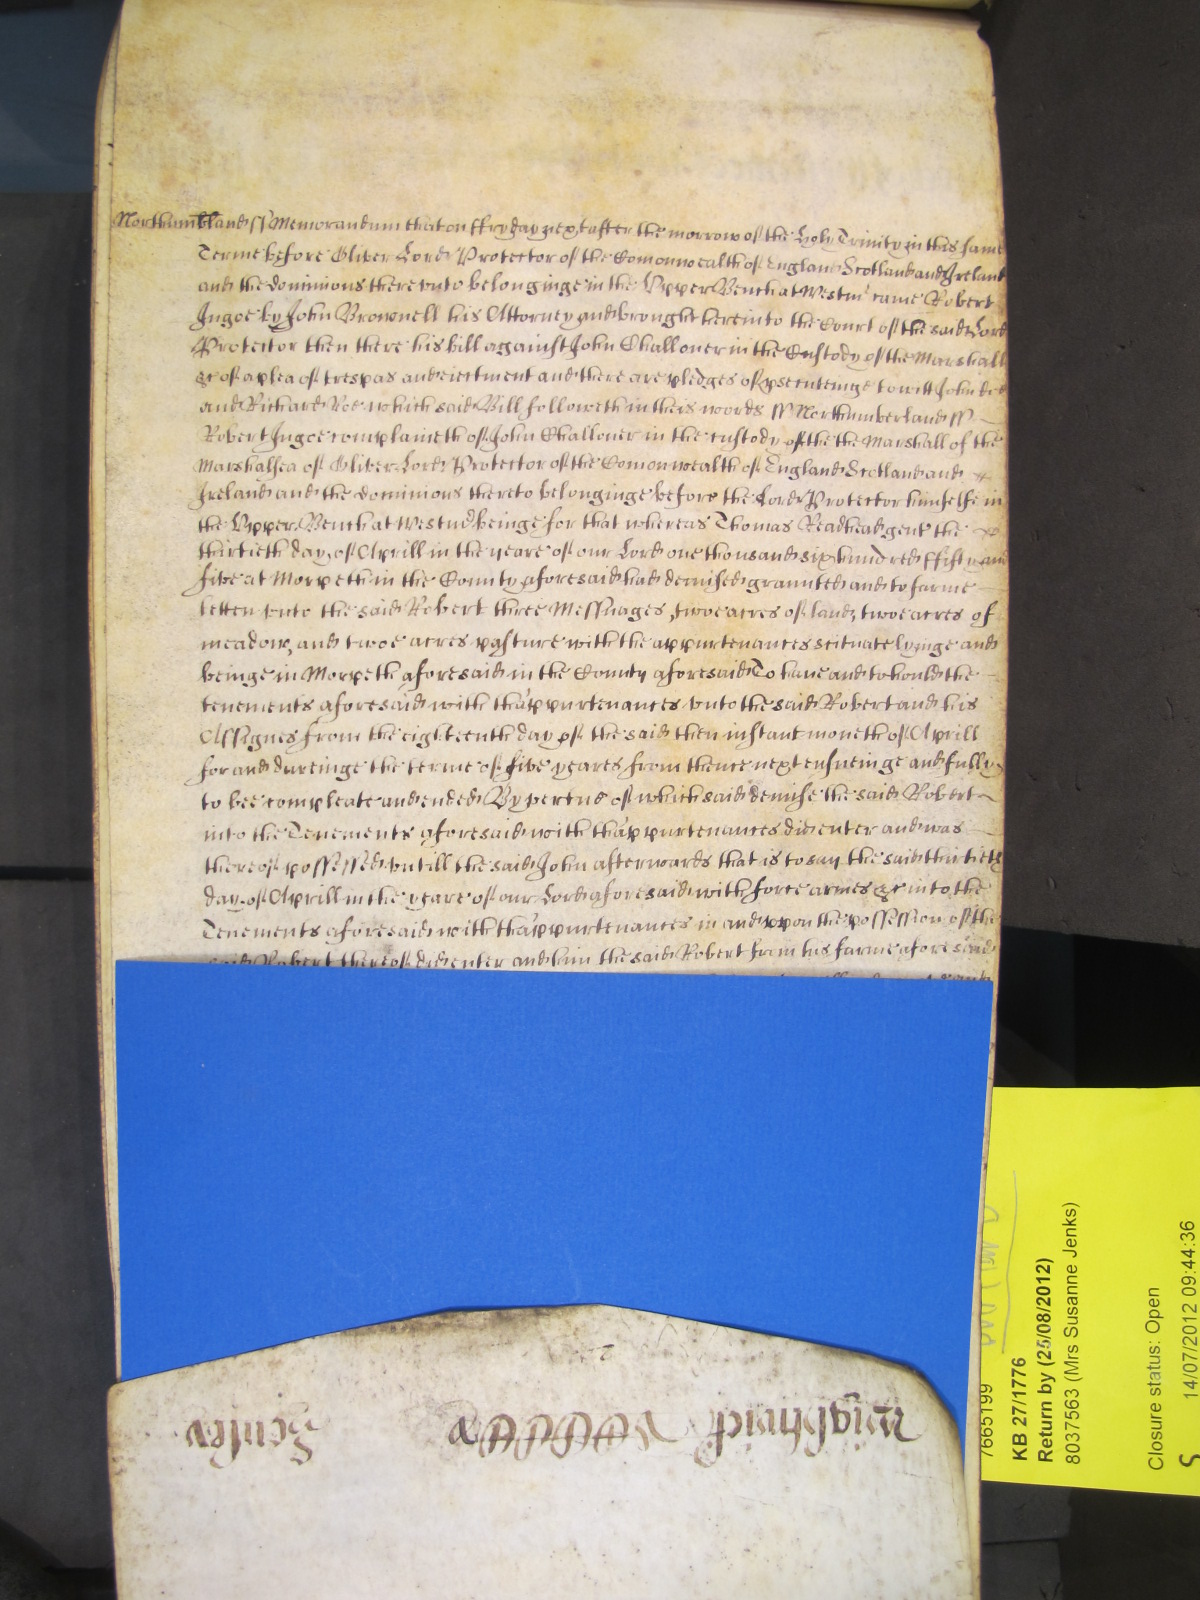 Northumbland ss Memorandum that on ffryday next after the morrow of the Holy Trinity in this same
Terme before Oliver Lord Protector of the Comonwealth of England Scotland and Ireland
and the dominions therevnto belonginge in the Vpper Bench at Westm' came Robert
Ingoe by John Brownell his Attorney and brought here into the Court of the said Lord
Protector then there his bill against John Challoner in the Custody of the Marshall
&c of a plea of trespas and eiectment and there are pledges of psecuteinge to witt John Doe
and Richard Roe which said Bill followeth in theis words ss Northumberland ss
Robert Ingoe complaineth of John Challoner in the custody of the the Marshall of the
Marshalsea of Oliver Lord Protector of the Comonwealth of England Scotland and
Ireland and the dominions thereto belonginge before the Lord Protector himselfe in
the Vpper Bench at Westm' beinge for that whereas Thomas Readhead gent the
thirtieth day of Aprill in the yeare of our Lord one thousand six hundred ffifty and
five at Morpeth in the County aforesaid had demised graunted and to farme
letten vnto the said Robert three Messuages, twoe acres of land, twoe acres of
meadow, and twoe acres pasture with the appurtenances scituate lyinge and
beinge in Morpeth aforesaid in the County aforesaid To have and to hould the
tenements aforesaid with thappurtenances vnto the said Robert and his
Assignes from the eighteenth day of the said then instant moneth of Aprill
for and dureinge the terme of five yeares from thence next ensueinge and fully
to bee compleate and ended By vertue of which said demise the said Robert
into the Tenements aforesaid with thappurtenances did enter and was
thereof possessed vntill the said John afterwards that is to say the said thirtieth
day of Aprill in the yeare of our Lord aforesaid with force armes &c into the
Tenements aforesaid with thappurtenances in and vpon the possession of the
said Robert thereof did enter and him the said Robert from his farme aforesaid
7665199
KB 27/1776
Return by (25/08/2012)
8037563 (Mrs Susanne Jenks)
Closure status: Open
14/07/2012 09:44:36
S